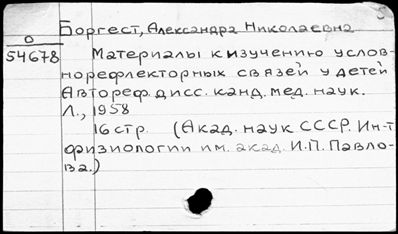 5
Боргест, Александра Николаевна
О
54678
Материалы к изучению услов-
норефлекторных связей у детей
Автореф. дисс. канд. мед. наук.
Л., 1958
16 стр. (Акад. наук СССР. Ин-т
физиологии им. акад. И.П. Павло-
ва.)